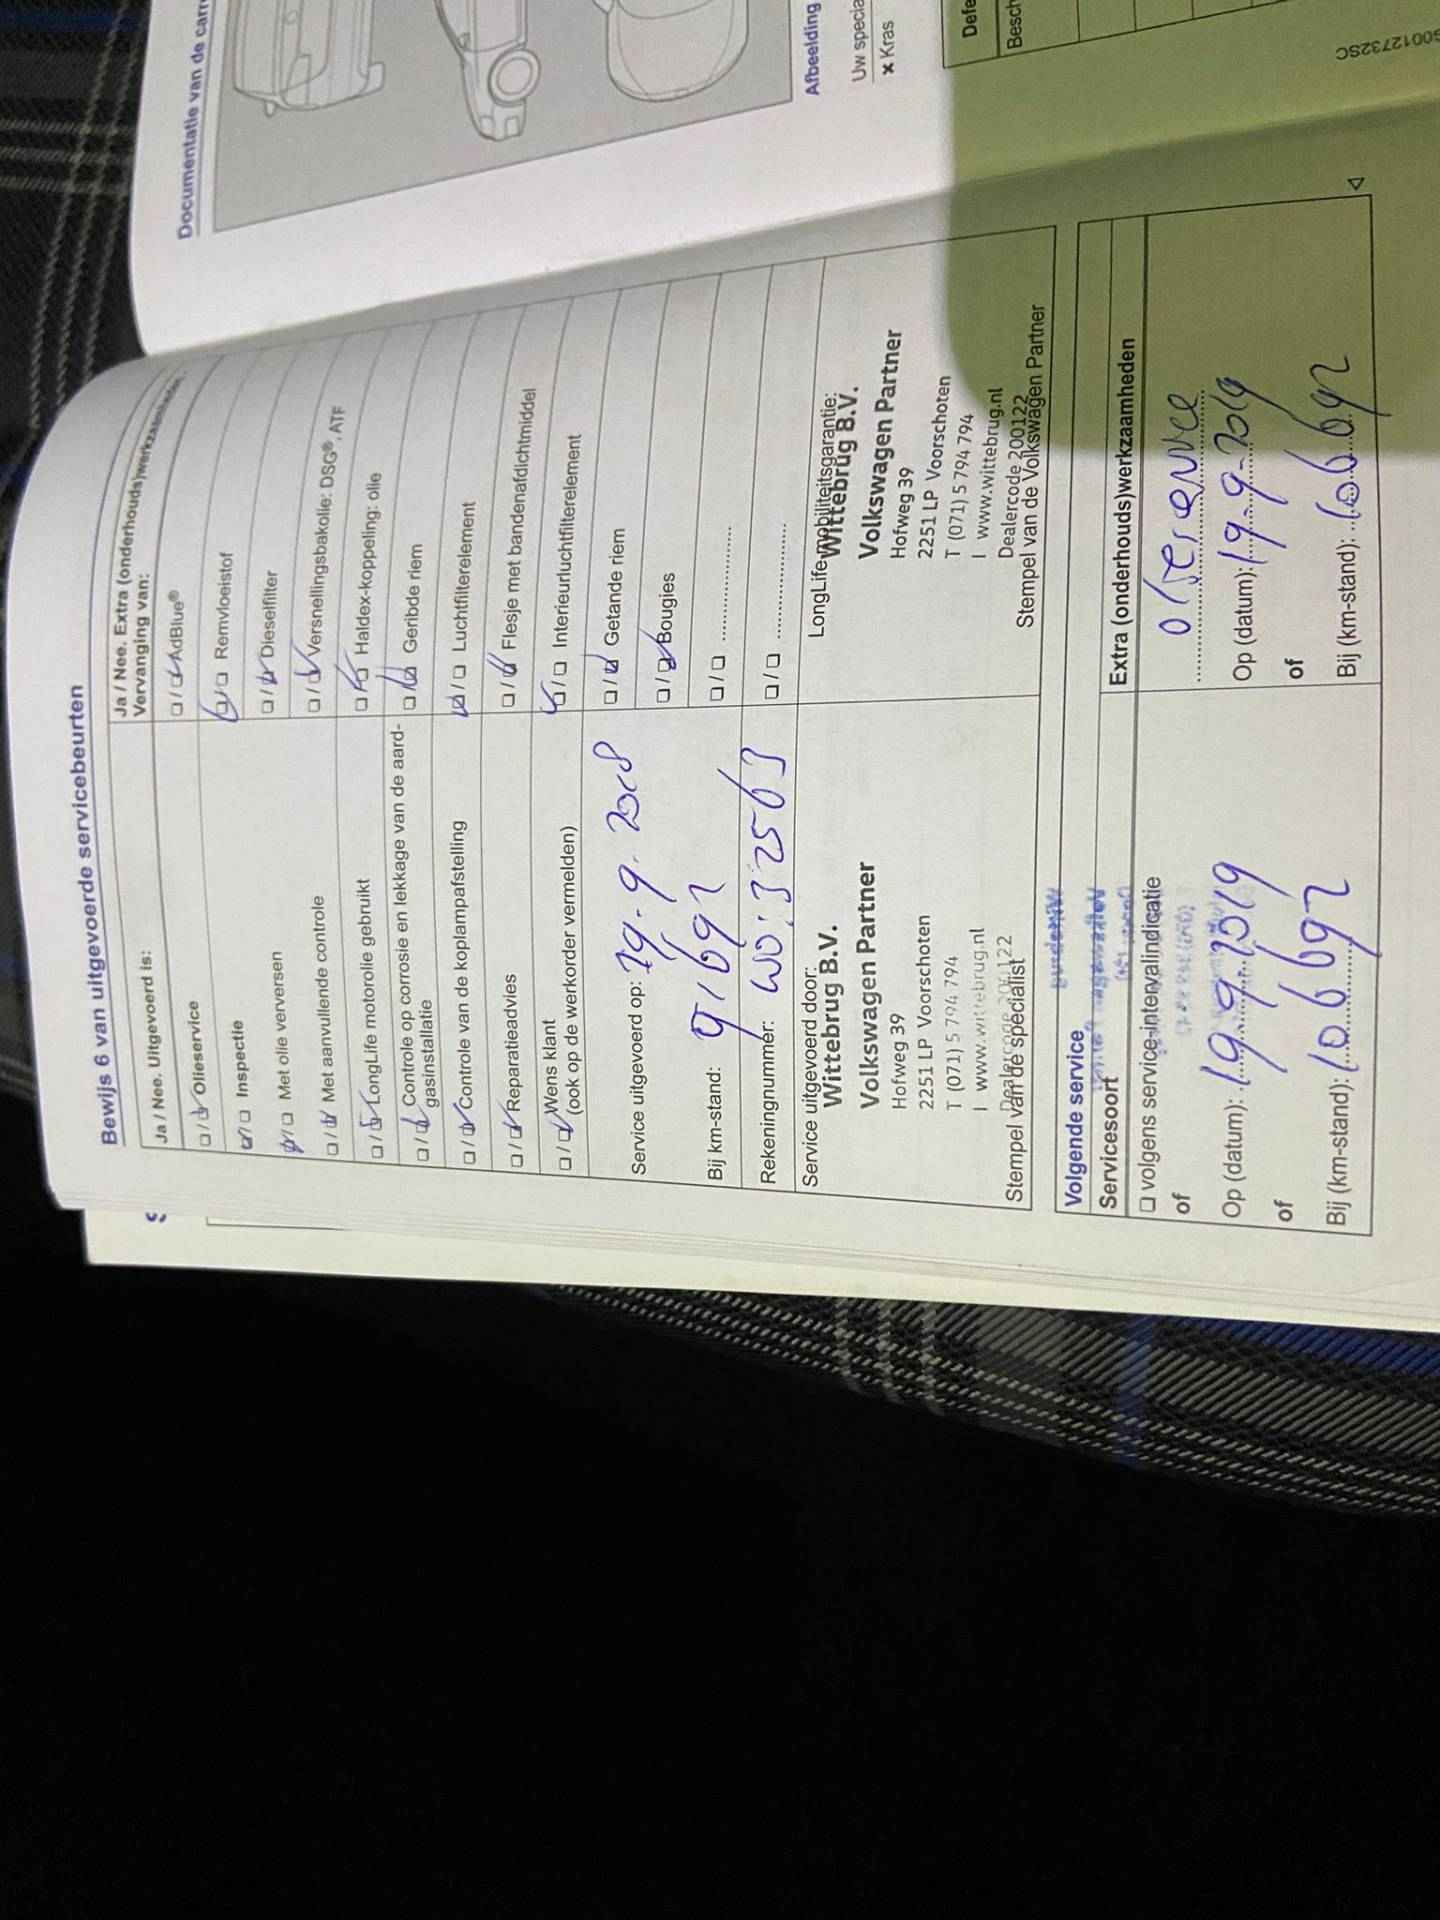 Bewijs 6 van uitgevoerde servicebeurten
Ja / Nee. Uitgevoerd is:
❏ / ❏ Olieservice
❏ / ❏ Inspectie
❏ / ❏ Met olie verversen
❏ / ❏ Met aanvullende controle
❏ / ❏ LongLife motorolie gebruikt
❏ / ❏ Controle op corrosie en lekkage van de aard-
gasinstallatie
❏ / ❏ Controle van de koplampafstelling
❏ / ❏ Reparatieadvies
❏ / ❏ Wens klant
(ook op de werkorder vermelden)
Service uitgevoerd op: 19.9.2018
Bij km-stand: 91697
Rekeningnummer: WO: 32563
Ja / Nee. Extra (onderhouds)werkzaamheden
Vervanging van:
❏ / ❏ AdBlue®
❏ / ❏ Remvloeistof
❏ / ❏ Dieselfilter
❏ / ❏ Versnellingsbakolie: DSG®, ATF
❏ / ❏ Haldex-koppeling: olie
❏ / ❏ Geribde riem
❏ / ❏ Luchtfilterelement
❏ / ❏ Flesje met bandenafdichtmiddel
❏ / ❏ Interieurluchtfilterelement
❏ / ❏ Getande riem
❏ / ❏ Bougies
❏ / ❏ ....................
❏ / ❏ ....................
Service uitgevoerd door:
Wittebrug B.V.
Volkswagen Partner
Hofweg 39
2251 LP Voorschoten
T (071) 5 794 794
I www.wittebrug.nl
Dealercode 200122
Stempel van de specialist
LongLifemobiliteitsgarantie:
Wittebrug B.V.
Volkswagen Partner
Hofweg 39
2251 LP Voorschoten
T (071) 5 794 794
I www.wittebrug.nl
Dealercode 200122
Stempel van de Volkswagen Partner
Volgende service
Servicesoort
❏ volgens service-intervalindicatie
of
Op (datum): 19.9.2019
of
Bij (km-stand): 106697
Extra (onderhouds)werkzaamheden
Op (datum): 19-9-2019
of
Bij (km-stand): 106697
Documentatie van de carr
Afbeelding
Uw specia
× Kras
Defe
Besch